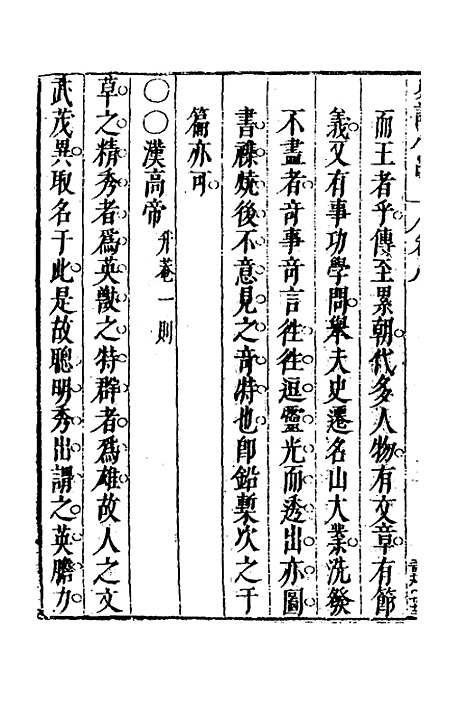 而王者乎傳至累朝代多人物有文章有節
義又有事功學問舉夫史遷名山大業洗發
不盡者奇事奇言徃徃逗靈光而透出亦圖
書禄燒後不意見之奇特也即鉛槧次之于
篇亦可
〇〇漢高帝 升菴一則
草之精秀者爲英獸之特群者爲雄故人之文
武茂異取名于此是故聰明秀出謂之英膽力